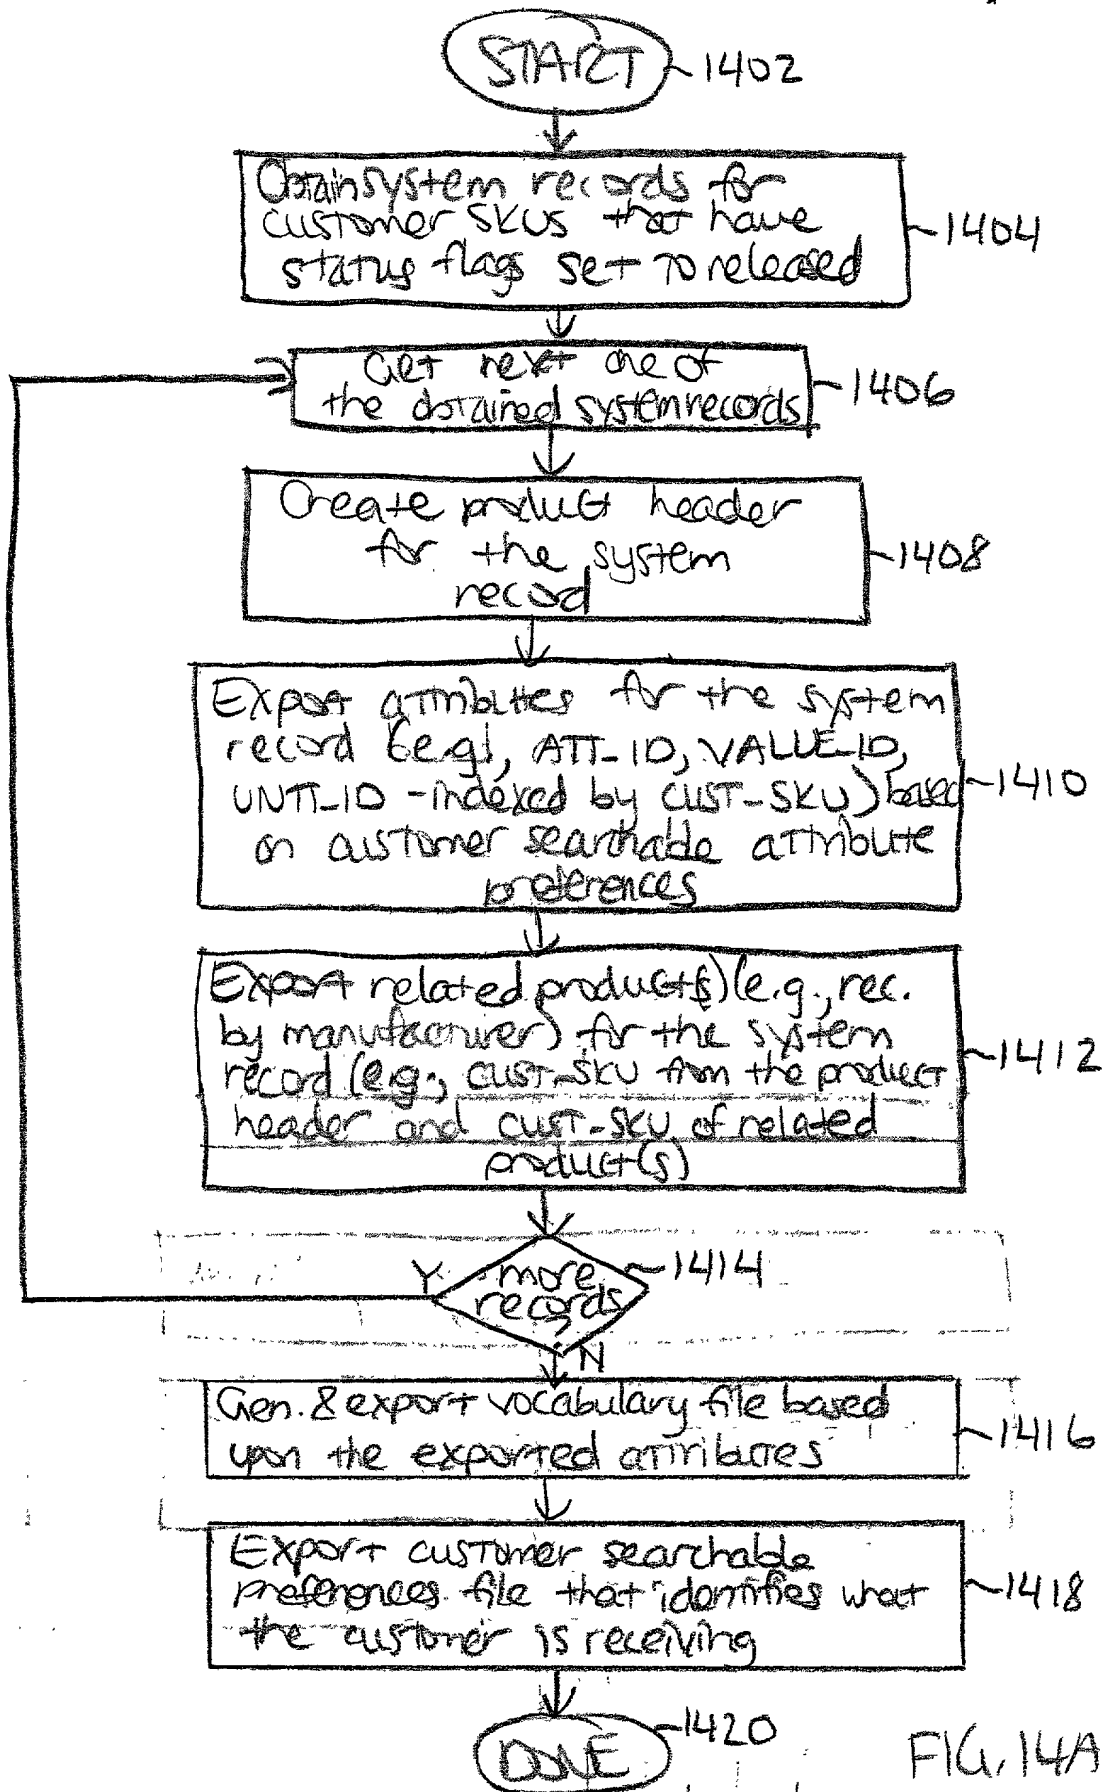 START
1402
Obtain system records for
customer SKUs that have
status flags set to released
1404
Get next one of
the obtained system records
1406
Create product header
for the system
record
1408
Export attributes for the system
record (e.g., ATT_ID, VALUE_ID,
UNIT_ID - indexed by CUST_SKU) based
on customer searchable attribute
preferences
1410
Export related product(s) (e.g., rec.
by manufacturer) for the system
record (e.g., CUST_SKU from the product
header and CUST_SKU of related
product(s)
1412
more
records
?
1414
Y
N
Gen. & export vocabulary file based
upon the exported attributes
1416
Export customer searchable
preferences file that identifies what
the customer is receiving
1418
DONE
1420
FIG. 14A